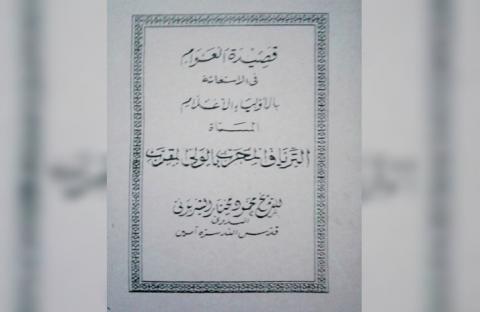 قصيدة العوام
في الاستغاثة
بالأولياء الأعلام
المسماة
الترياق المجرب بالولي المقرب
للشيخ محمود مختار الشربيني
قدس الله سره آمين